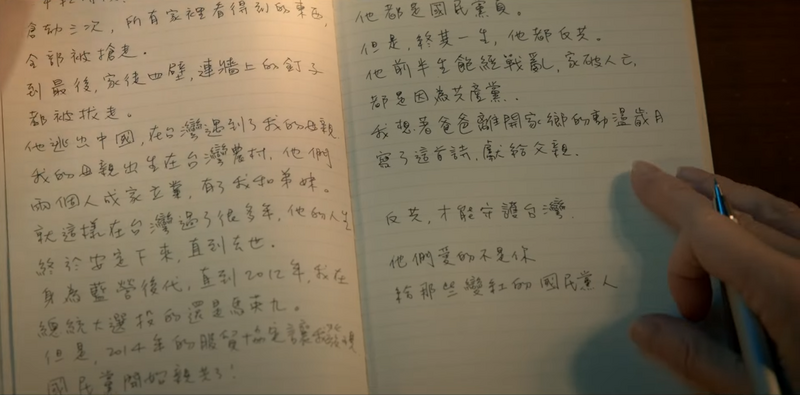 會劫三次，所有家裡看得到的東西，
全部被搶走．
到最後，家徒四壁，連牆上的釘子
都被拔走．
他逃出中國，在台灣遇到了我的母親
我的母親出生在台灣農村．他們
兩個人成家立業，有了我和弟妹．
就這樣在台灣過了很多年，他的人生
終於安定下來，直到去世．
身為藍營後代，直到2012年，我在
總統大選投的還是馬英九．
但是，2014年的服貿協定讓我發現
國民黨開始親共了！
他都是國民黨員．
但是，終其一生，他都反共．
他前半生飽經戰亂，家破人亡，
都是因為共產黨．
我想著爸爸離開家鄉的動盪歲月
寫了這首詩，獻給父親．
反共，才能守護台灣．
他們愛的不是你
給那些變紅的國民黨人